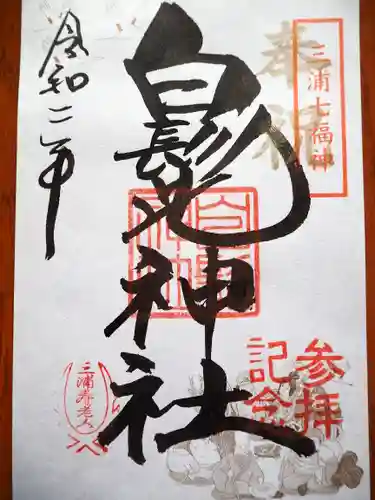 奉祝
三浦七福神
白髭神社
白髭神社
令和二年
参拝
記念
三浦寿老人